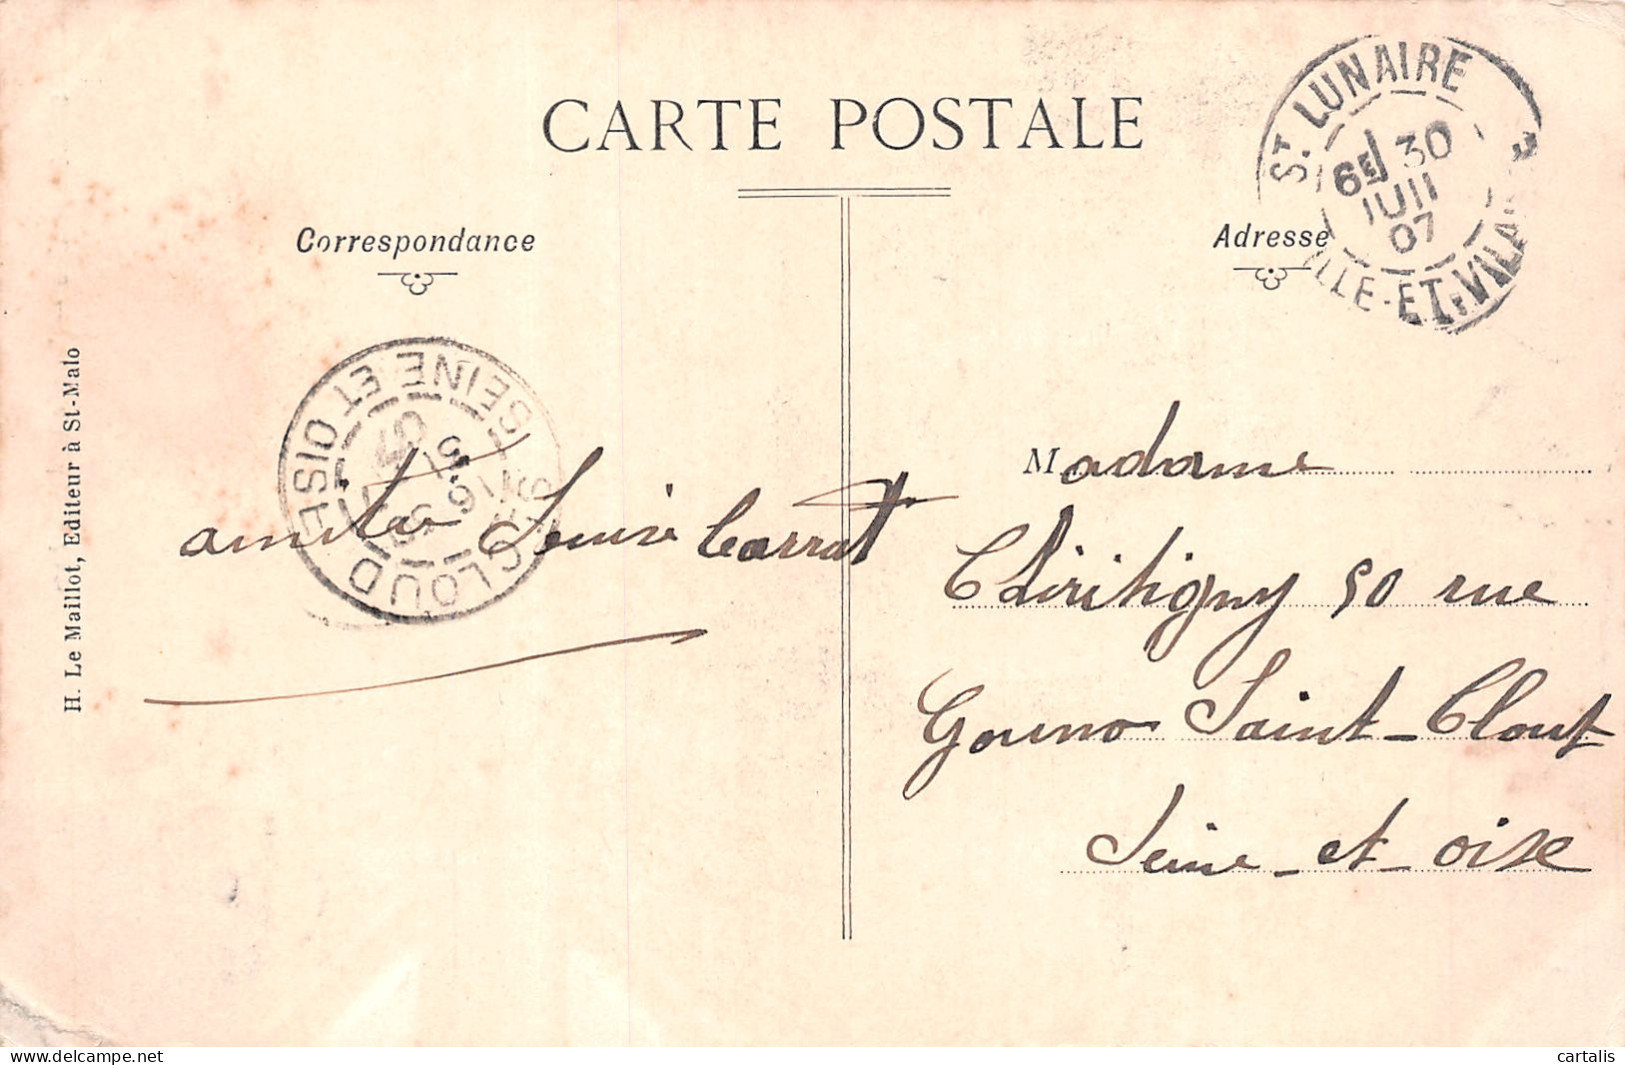 CARTE POSTALE
Correspondance
Adresse
ST. LUNAIRE
6E 30
JUIL
07
ILLE-ET-VILAINE
SEINE ET OISE
CLOUD
H. Le Maillot, Editeur à St-Malo
Madame
50 rue
Gouno Saint-Clout
Seine-et-oise
amitié Louise Carrat
cartalis